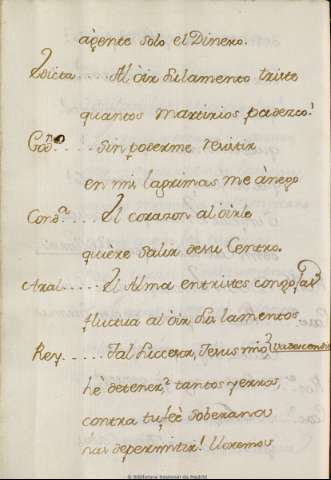 açente solo el Dinero.
Edicta.... Al oir su lamento triste
quantos martirios padezco!
God.no.... Sin poderme resistir
en mi lagrimas me anego
Cond.a.... El corazon al oirle
quiere salir de su Centro.
Aral..... El Alma entristes congojas
fluctua al oir sus lamentos
Rey...... Tal hiciera, Jesus mio,
hè detener, tantos yerros,
contra tu feè soberana
has de permitir! Lloremos
© Biblioteca Nacional de Madrid